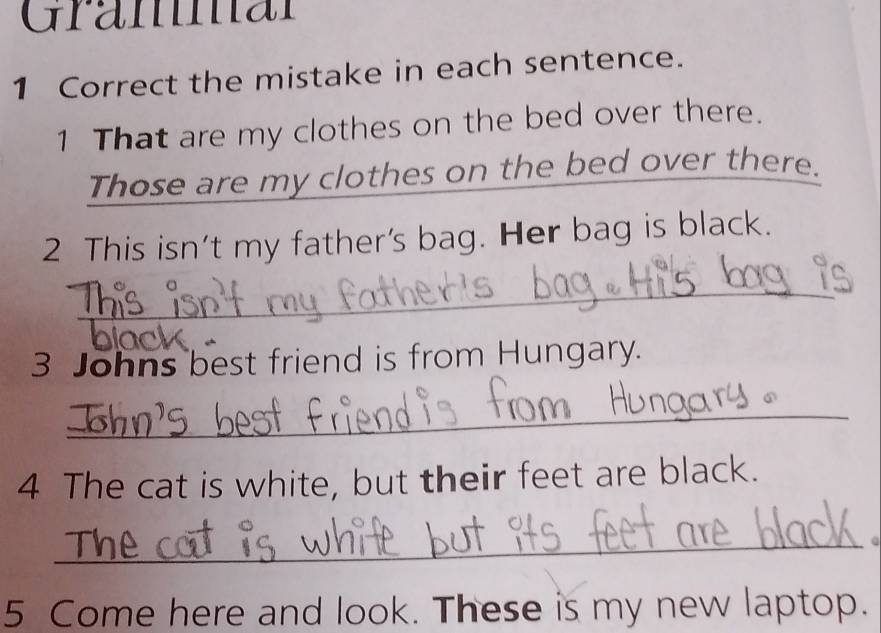 Grammar
1 Correct the mistake in each sentence.
1 That are my clothes on the bed over there.
Those are my clothes on the bed over there.
2 This isn't my father's bag. Her bag is black.
This isn't my father's bag. His bag is
black.
3 Johns best friend is from Hungary.
John's best friend is from Hungary.
4 The cat is white, but their feet are black.
The cat is white but its feet are black.
5 Come here and look. These is my new laptop.